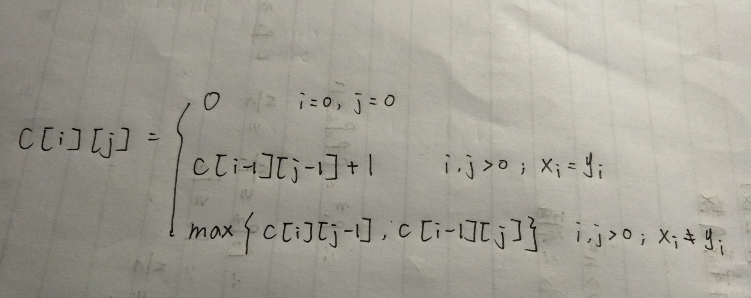 0 i=0, j=0
C[i][j] =
C[i-1][j-1]+1 i,j>0; xi=yi
max{C[i][j-1], C[i-1][j]} i,j>0; xi≠yi